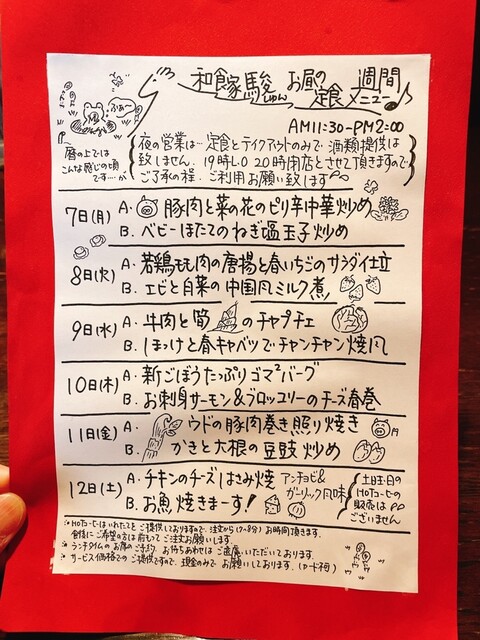 和食家 駿 しゅん お昼の定食 週間メニュー♪
AM11:30-PM2:00
ふあ〜
暦の上では
こんな感じの頃
です‥‥が
夜の営業は…定食とテイクアウトのみで 酒類提供は
致しません。19時L.O 20時閉店とさせて頂きますので
ご了承の程、ご利用お願い致します
7日(月) A. 豚肉と菜の花のピリ辛中華炒め
B. ベビーほたてのねぎ塩玉子炒め
8日(火) A. 若鶏もも肉の唐揚と春いちごのサラダ仕立
B. エビと白菜の中国風ミルク煮
9日(水) A. 牛肉と筍のチャプチェ
B. ほっけと春キャベツでチャンチャン焼風
10日(木) A. 新ごぼうたっぷりゴマ²バーグ
B. お刺身サーモン&ブロッコリーのチーズ春巻
11日(金) A. ウドの豚肉巻き照り焼き
B. かきと大根の豆豉炒め
12日(土) A. チキンのチーズはさみ焼 アンチョビ&ガーリック風味
B. お魚焼きまーす!
土・日・祝日の
HOTコーヒーの
販売は
ございません
HOTコーヒーはいれたてをご提供しておりますので、注文から(7〜8分)お時間頂きます。
食後にご希望の方は前もってご注文お願いします。
ランチタイムのお席のご予約、お待ちあわせはご遠慮いただいております。
サービス価格でのご提供ですので、現金のみでお願いしております。(カード不可)